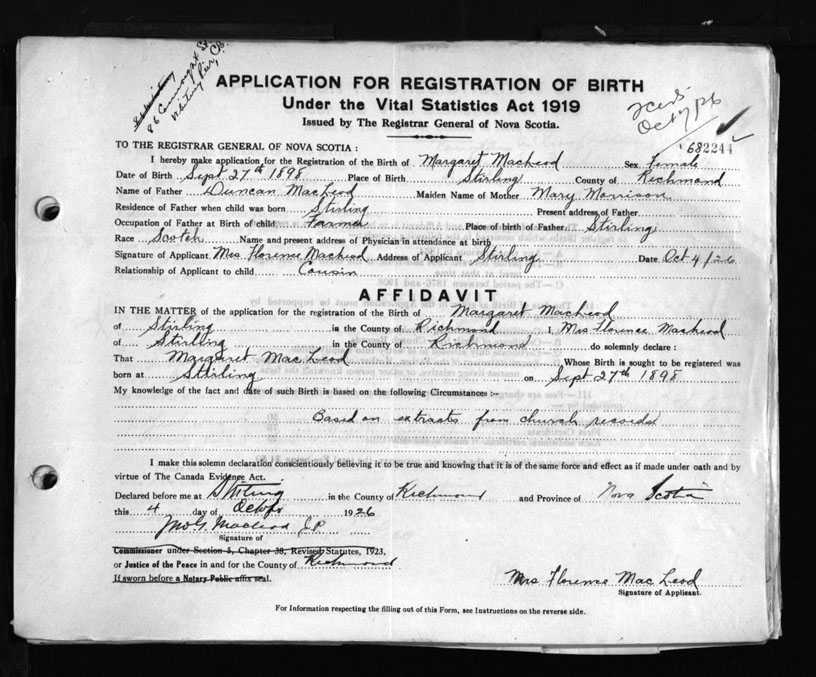 86 Cunningx St.
Whitney Pier, C.B.
APPLICATION FOR REGISTRATION OF BIRTH
Under the Vital Statistics Act 1919
Issued by The Registrar General of Nova Scotia.
682244
TO THE REGISTRAR GENERAL OF NOVA SCOTIA :
I hereby make application for the Registration of the Birth of Margaret MacLeod Sex Female
Date of Birth Sept 27th 1898 Place of Birth Stirling County of Richmond
Name of Father Duncan MacLeod Maiden Name of Mother Mary Morrison
Residence of Father when child was born Stirling Present address of Father
Occupation of Father at Birth of child Farmer Place of birth of Father Stirling
Race Scotch Name and present address of Physician in attendance at birth
Signature of Applicant Mrs. Florence MacLeod Address of Applicant Stirling Date Oct 4/26
Relationship of Applicant to child Cousin
AFFIDAVIT
IN THE MATTER of the application for the registration of the Birth of Margaret MacLeod
of Stirling in the County of Richmond I, Mrs Florence MacLeod
of Stirling in the County of Richmond do solemnly declare :
That Margaret MacLeod Whose Birth is sought to be registered was
born at Stirling on Sept 27th 1898
My knowledge of the fact and date of such Birth is based on the following Circumstances :—
Based on extracts from church records
I make this solemn declaration conscientiously believing it to be true and knowing that it is of the same force and effect as if made under oath and by
virtue of The Canada Evidence Act.
Declared before me at Stirling in the County of Richmond and Province of Nova Scotia
this 4 day of Octobr 1926
Jno. G. Macleod J.P.
Signature of
Commissioner under Section 5, Chapter 38, Revised Statutes, 1923,
or Justice of the Peace in and for the County of Richmond
If sworn before a Notary Public affix seal.
Mrs Florence MacLeod
Signature of Applicant.
For Information respecting the filling out of this Form, see Instructions on the reverse side.